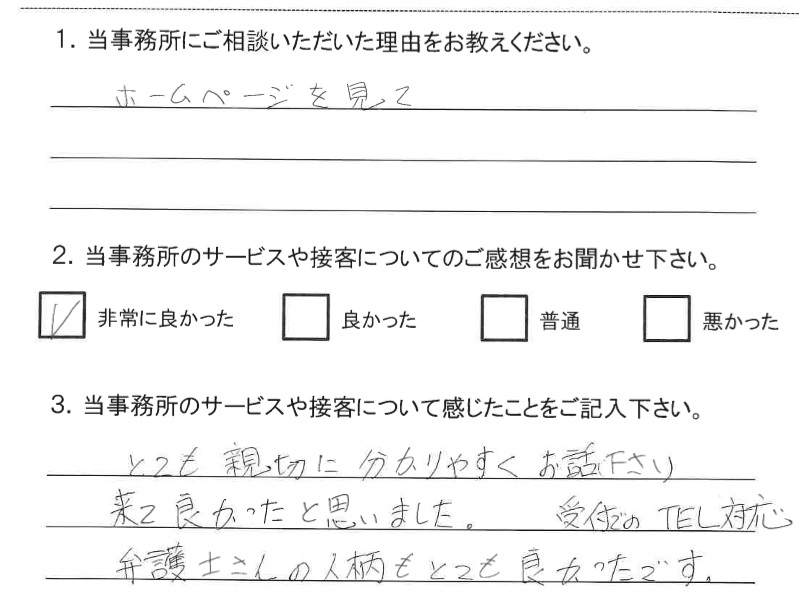 1. 当事務所にご相談いただいた理由をお教えください。
ホームページを見て
2. 当事務所のサービスや接客についてのご感想をお聞かせ下さい。
非常に良かった 良かった 普通 悪かった
3. 当事務所のサービスや接客について感じたことをご記入下さい。
とても親切に分かりやすくお話下さり
来て良かったと思いました。 受付でのTEL対応
弁護士さんの人柄もとても良かったです。